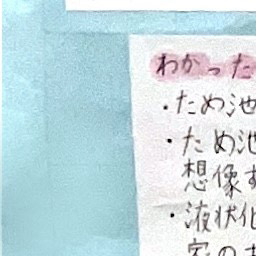 わかった
・ため池
・ため池
想像す
・液状化